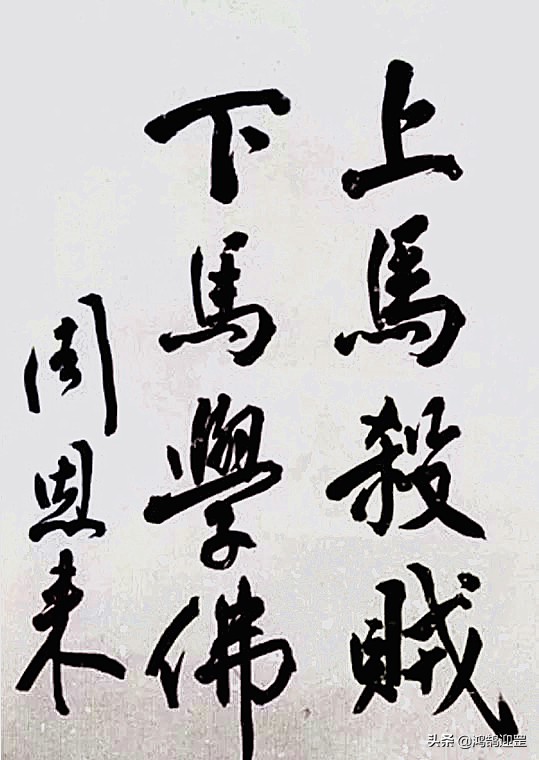 上馬殺賊
下馬學佛
周恩来
头条 @鸿鹄迎罡